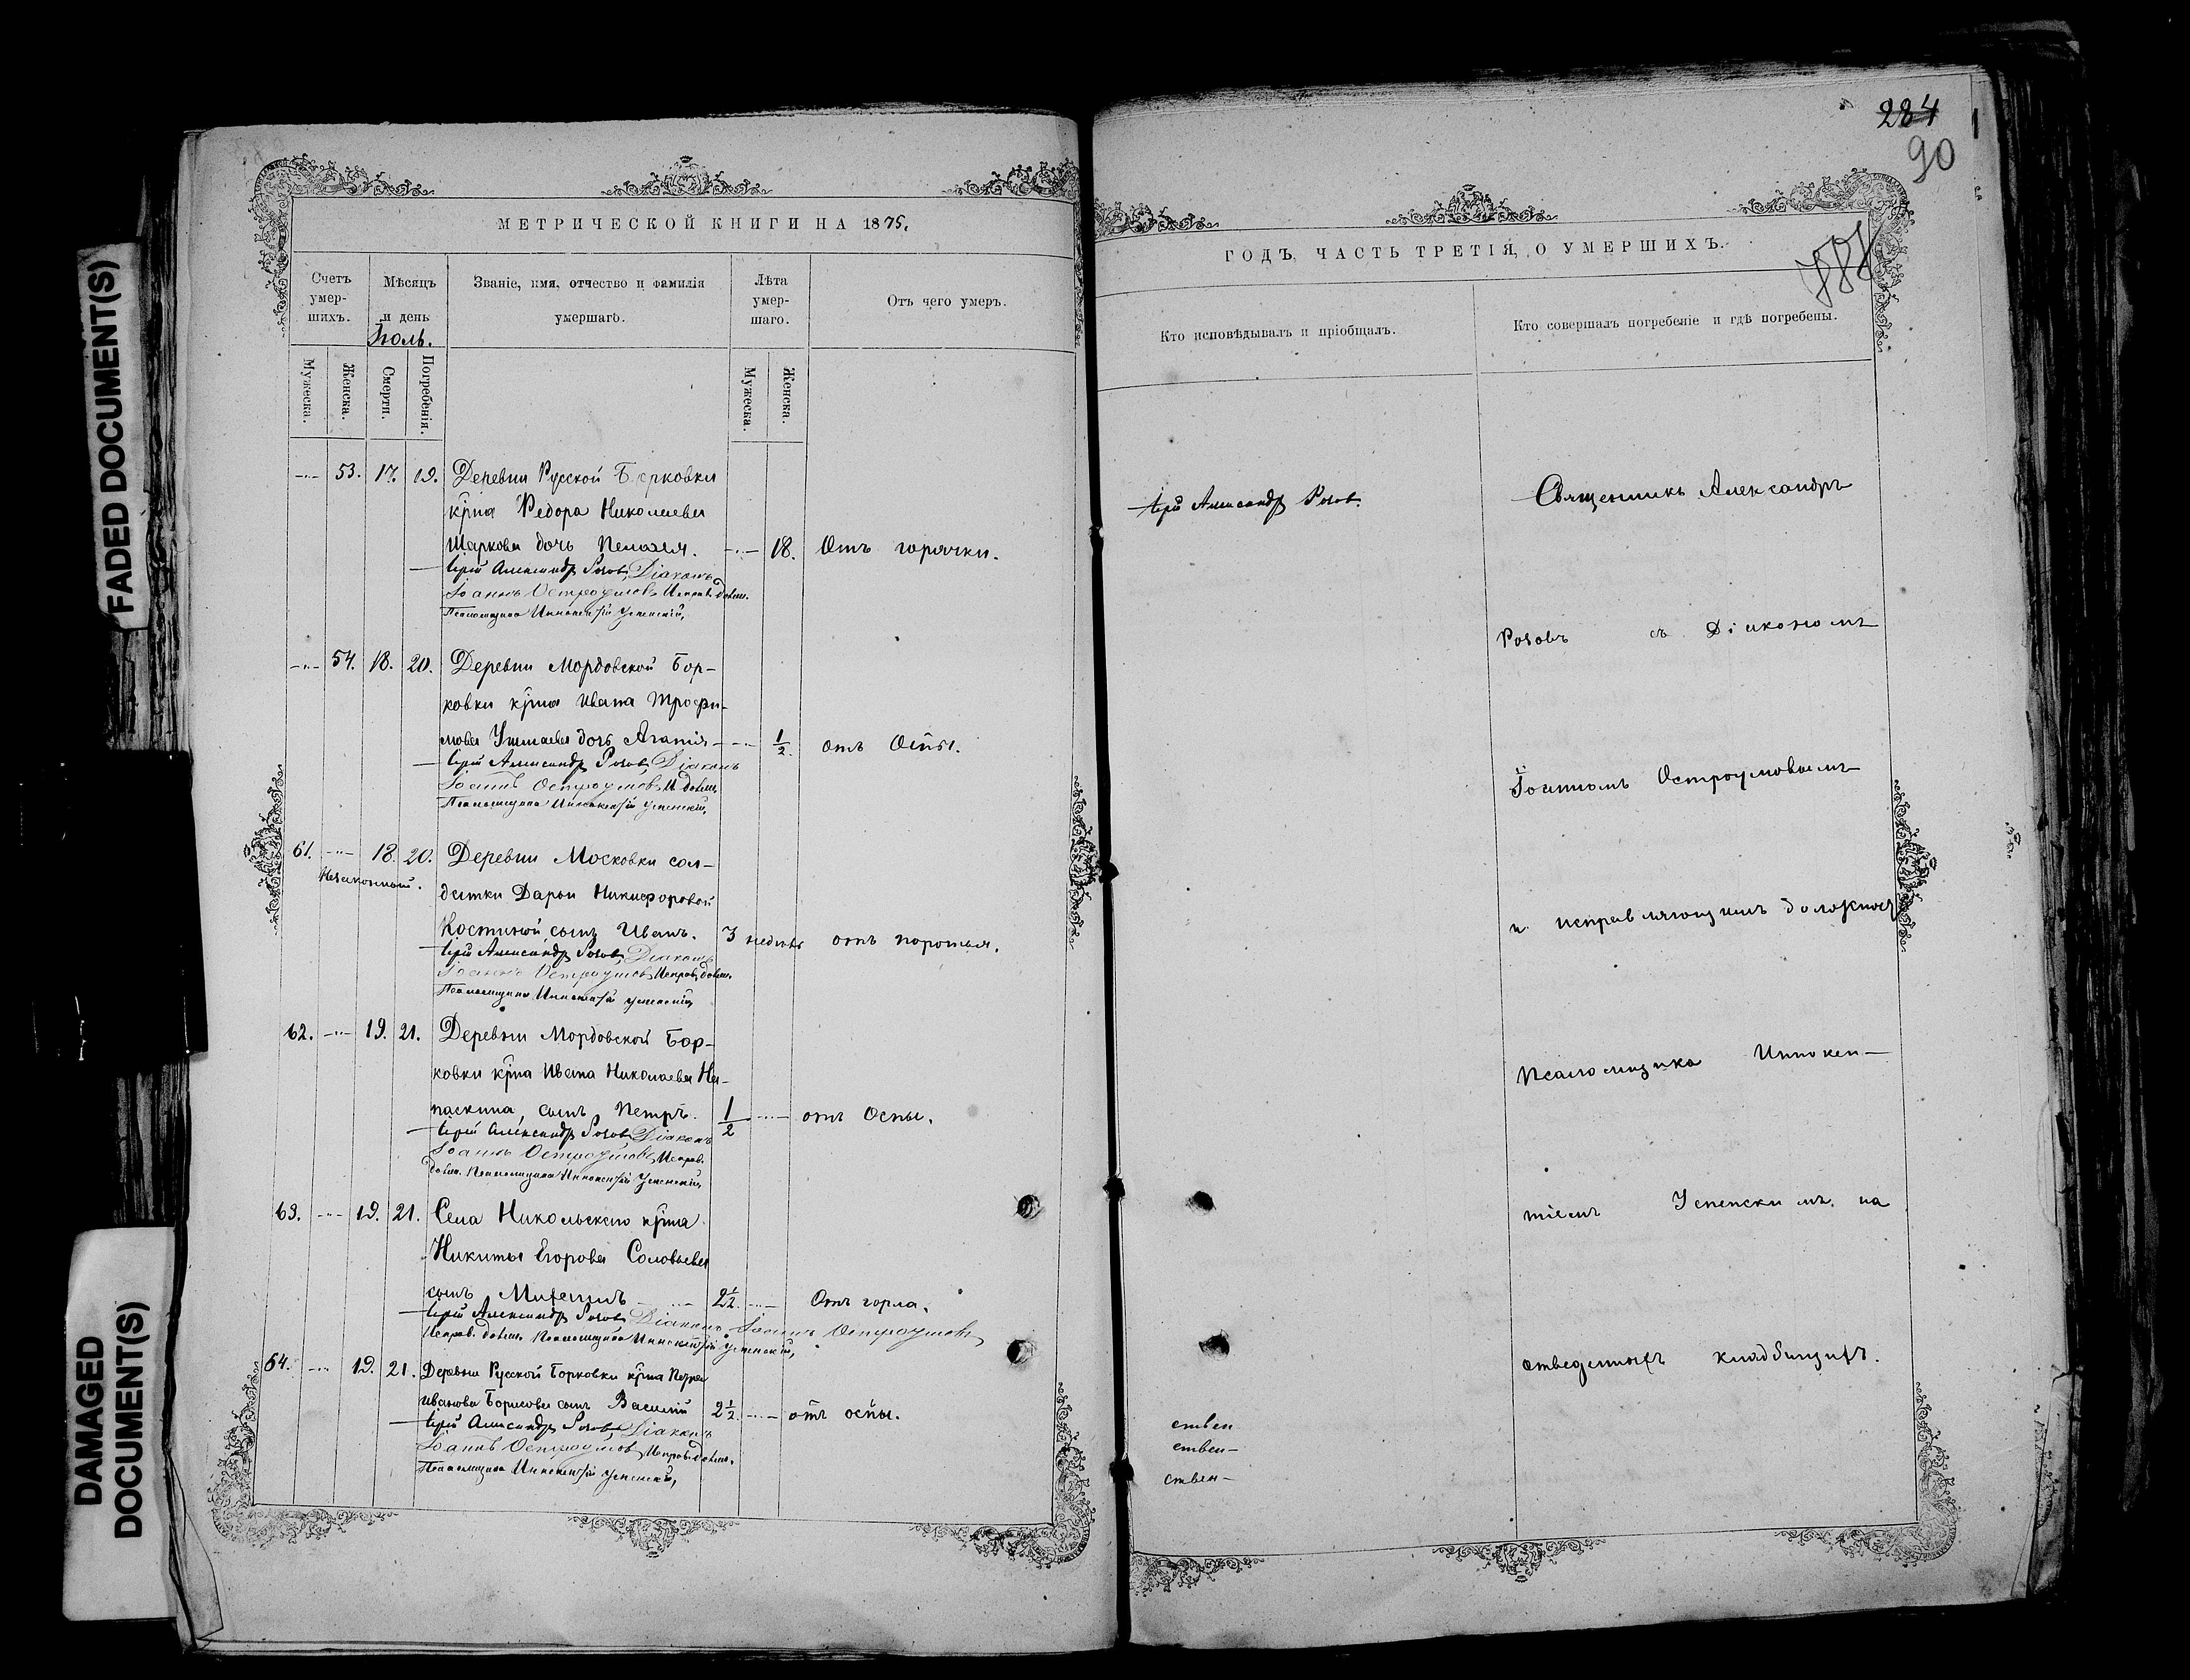 FADED DOCUMENT(S)
DAMAGED
DOCUMENT(S)
МЕТРИЧЕСКОЙ КНИГИ НА 1875.
Счетъ умер-шихъ.
Мѣсяцъ и день
Іюль.
Званіе, имя, отчество и фамилія умершаго.
Лѣта умер-шаго.
Отъ чего умеръ.
Мужеска.
Женска.
Смерти.
Погребенія.
Мужеска.
Женска.
-"- 53. 17. 19. Деревни Русской Борковки
кр̃на Ѳедора Николаева
Шаркова дочь Пелагія. -"- 18. Отъ горячки.
Іерей Александръ Розовъ, Діаконъ
Іоаннъ Остроумовъ, Исправ. долж.
Псаломщика Иннокентій Успенскій,
-"- 54. 18. 20. Деревни Мордовской Бор-
ковки кр̃на Ивана Трофи-
мова дочь Агапія -"- 1/2. отъ Оспы.
Іерей Александръ Розовъ, Діаконъ
Іоаннъ Остроумовъ, И. долж.
Псаломщика Иннокентій Успенскій,
61. -"- 18. 20. Деревни Московки сол-
Незаконный.
датки Дарьи Никифоровой
Костиной сынъ Иванъ. 3 недѣль отъ
Іерей Александръ Розовъ, Діаконъ
Іоаннъ Остроумовъ, Исправ. долж.
Псаломщика Иннокентій Успенскій,
62. -"- 19. 21. Деревни Мордовской Бор-
ковки кр̃на Ивана Николаева На-
паскина, сынъ Петръ. 1/2 -"- отъ Оспы.
Іерей Александръ Розовъ, Діаконъ
Іоаннъ Остроумовъ, Исправ.
долж. Псаломщика Иннокентій Успенскій,
63. -"- 19. 21. Села Никольскаго кр̃на
Никиты Егорова Соловьева
сынъ Михаилъ -"- 2 1/2. -"- Отъ горла.
Іерей Александръ Розовъ, Діаконъ Іоаннъ Остроумовъ,
Исправ. долж. Псаломщика Иннокентій Успенскій,
64. -"- 19. 21. Деревни Русской Борковки кр̃на Петра
Иванова Борисова сынъ Василій 2 1/2. -"- отъ оспы.
Іерей Александръ Розовъ, Діаконъ
Іоаннъ Остроумовъ, Исправ. долж.
Псаломщика Иннокентій Успенскій,
284
90
ГОДЪ, ЧАСТЬ ТРЕТІЯ, О УМЕРШИХЪ.
Кто исповѣдывалъ и пріобщалъ.
Кто совершалъ погребеніе и гдѣ погребены.
Іерей Александръ Розовъ.
Священникъ Александръ
Розовъ съ Діакономъ
Іоанномъ Остроумовымъ
и исправляющимъ должность
Псаломщика Иннокен-
тіемъ Успенскимъ. на
отведенныхъ кладбищахъ.
ствен
ствен-
ствен-